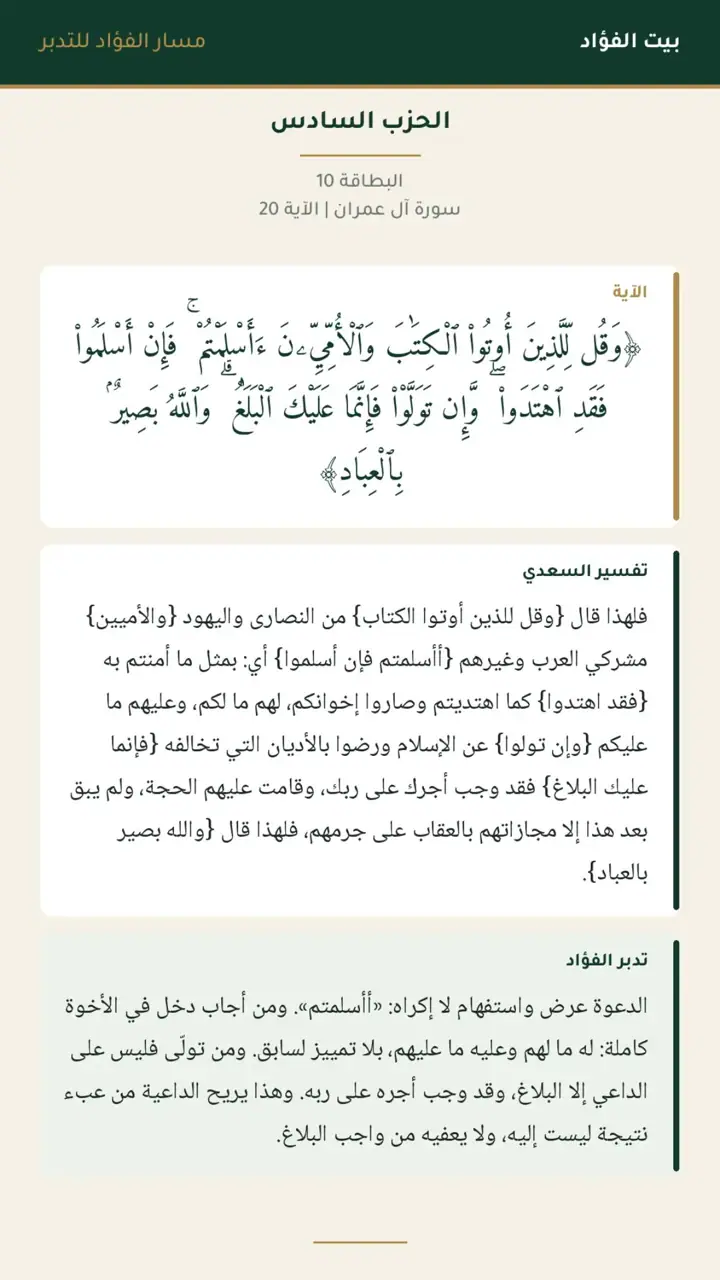 بيت الفؤاد
مسار الفؤاد للتدبر
الحزب السادس
البطاقة 10
سورة آل عمران | الآية 20
الآية
﴿وَقُل لِّلَّذِينَ أُوتُوا۟ ٱلْكِتَـٰبَ وَٱلْأُمِّيِّـۧنَ ءَأَسْلَمْتُمْ ۚ فَإِنْ أَسْلَمُوا۟
فَقَدِ ٱهْتَدَوا۟ ۖ وَّإِن تَوَلَّوْا۟ فَإِنَّمَا عَلَيْكَ ٱلْبَلَـٰغُ ۗ وَٱللَّهُ بَصِيرٌۢ
بِٱلْعِبَادِ﴾
تفسير السعدي
فلهذا قال {وقل للذين أوتوا الكتاب} من النصارى واليهود {والأميين}
مشركي العرب وغيرهم {أأسلمتم فإن أسلموا} أي: بمثل ما أمنتم به
{فقد اهتدوا} كما اهتديتم وصاروا إخوانكم، لهم ما لكم، وعليهم ما
عليكم {وإن تولوا} عن الإسلام ورضوا بالأديان التي تخالفه {فإنما
عليك البلاغ} فقد وجب أجرك على ربك، وقامت عليهم الحجة، ولم يبق
بعد هذا إلا مجازاتهم بالعقاب على جرمهم، فلهذا قال {والله بصير
بالعباد}.
تدبر الفؤاد
الدعوة عرض واستفهام لا إكراه: «أأسلمتم». ومن أجاب دخل في الأخوة
كاملة: له ما لهم وعليه ما عليهم، بلا تمييز لسابق. ومن تولّى فليس على
الداعي إلا البلاغ، وقد وجب أجره على ربه. وهذا يريح الداعية من عبء
نتيجة ليست إليه، ولا يعفيه من واجب البلاغ.